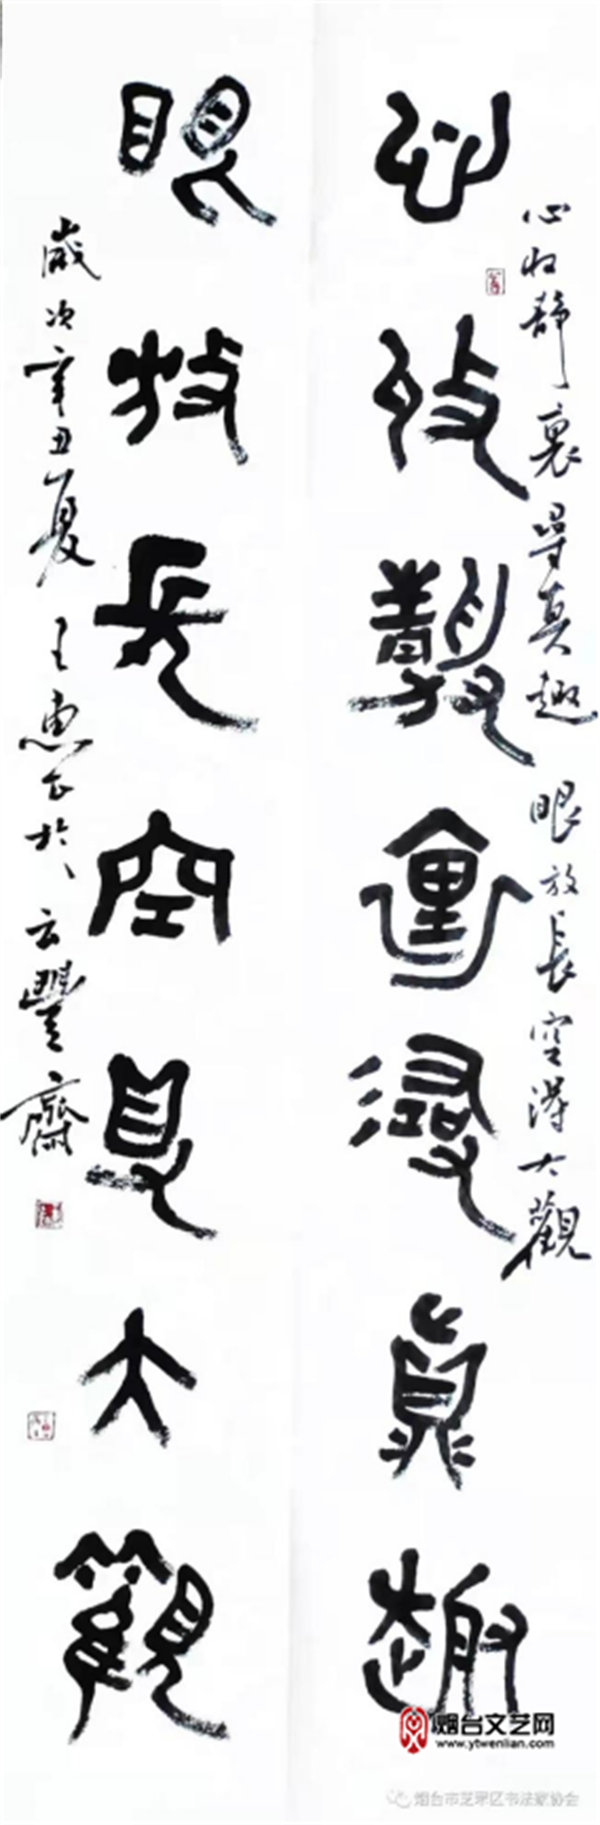 心收静裏得真趣 眼放長空得大觀
心收靜裏得真趣
眼放長空得大觀
歲次辛丑夏王惠於云豐齋
烟台文艺网
www.ytwenlian.com
烟台市芝罘区书法家协会